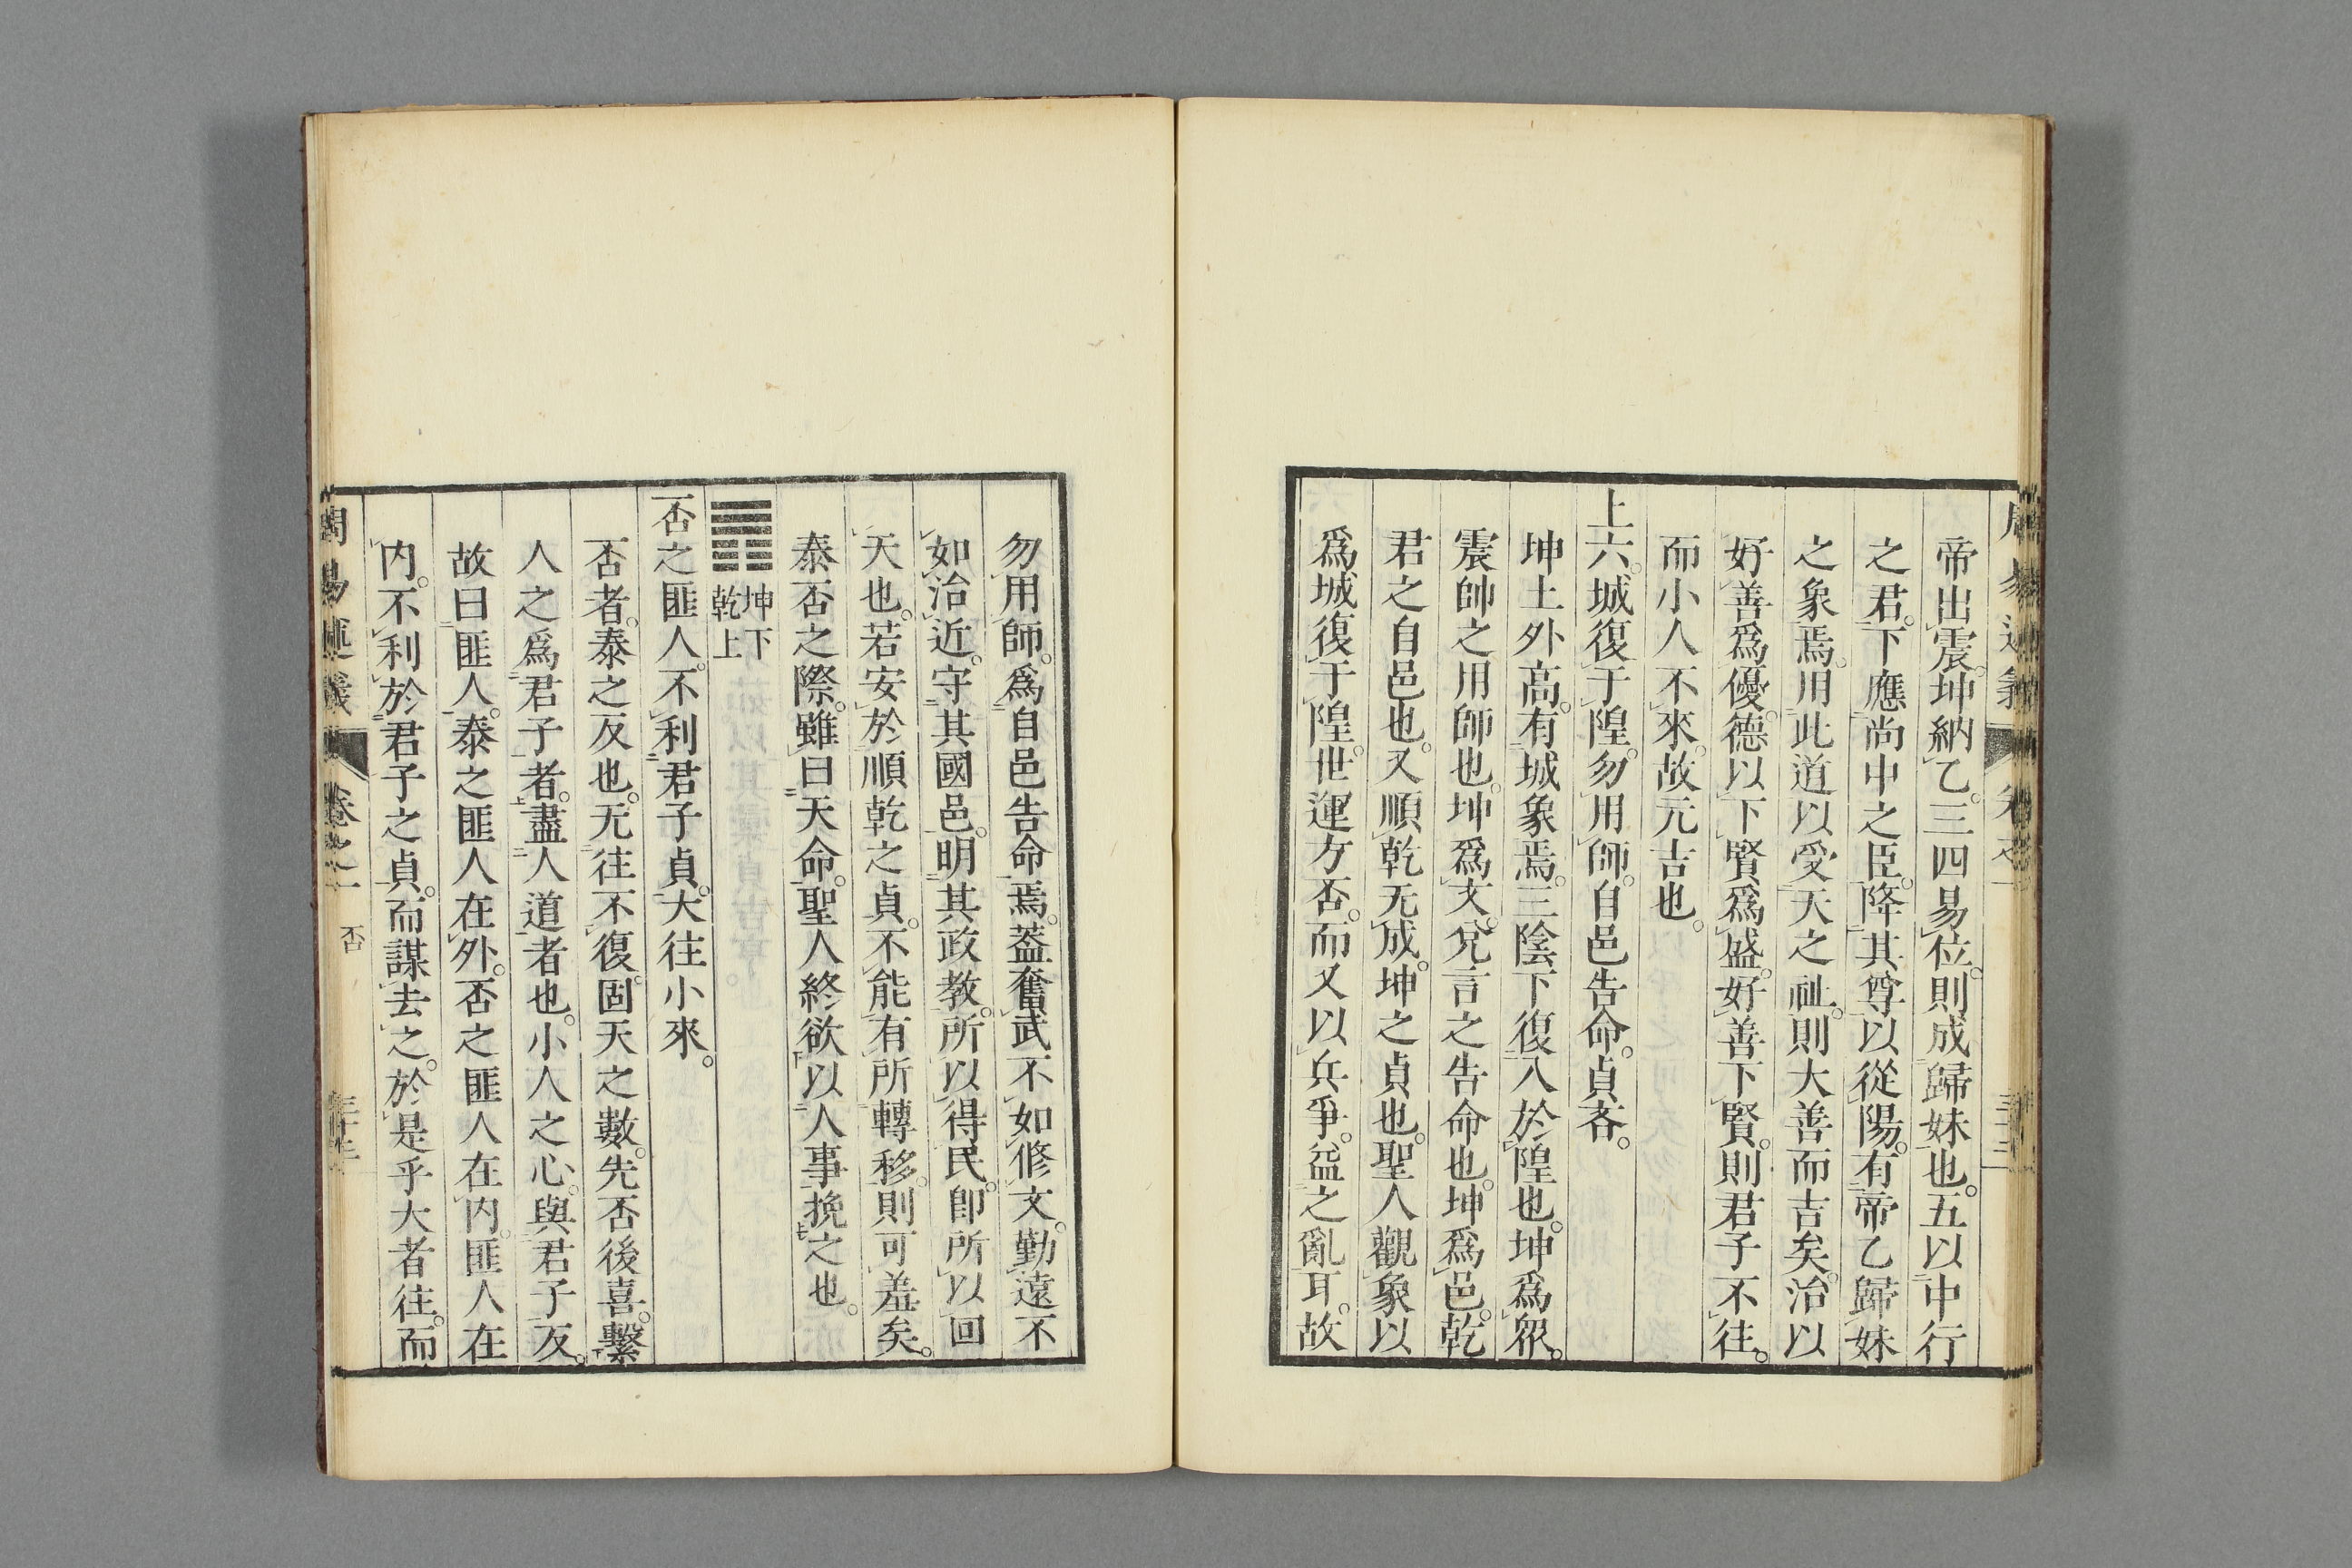 帝出震。坤納乙。三四易位。則成歸妹也。五以中行
之君。下應尚中之臣。降其尊以從陽。有帝乙歸妹
之象焉。用此道以受天之祉。則大善而吉矣。治以
好善爲優。德以下賢爲盛。好善下賢。則君子不往。
而小人不來。故元吉也。
上六。城復于隍。勿用師。自邑告命。貞吝。
坤土外高。有城象焉。三陰下復入於隍也。坤爲眾。
震帥之用師也。坤爲文。兌言之告命也。坤爲邑。乾
君之自邑也。又順乾无成。坤之貞也。聖人觀象以
爲城復于隍。世運方否。而又以兵爭。益之亂耳。故
勿用師。爲自邑告命焉。蓋奮武不如修文。勤遠不
如治近。守其國邑。明其政教。所以得民。卽所以回
天也。若安於順乾之貞。不能有所轉移。則可羞矣。
泰否之際。雖曰天命。聖人終欲以人事挽之也。
坤下
乾上
否之匪人。不利君子貞。大往小來。
否者。泰之反也。无往不復。固天之數。先否後喜。繫
人之爲君子者。盡人道者也。小人之心。與君子反。
故曰匪人。泰之匪人在外。否之匪人在内。匪人在
内。不利於君子之貞。而謀去之。於是乎大者往。而
周易述義 卷之一 否